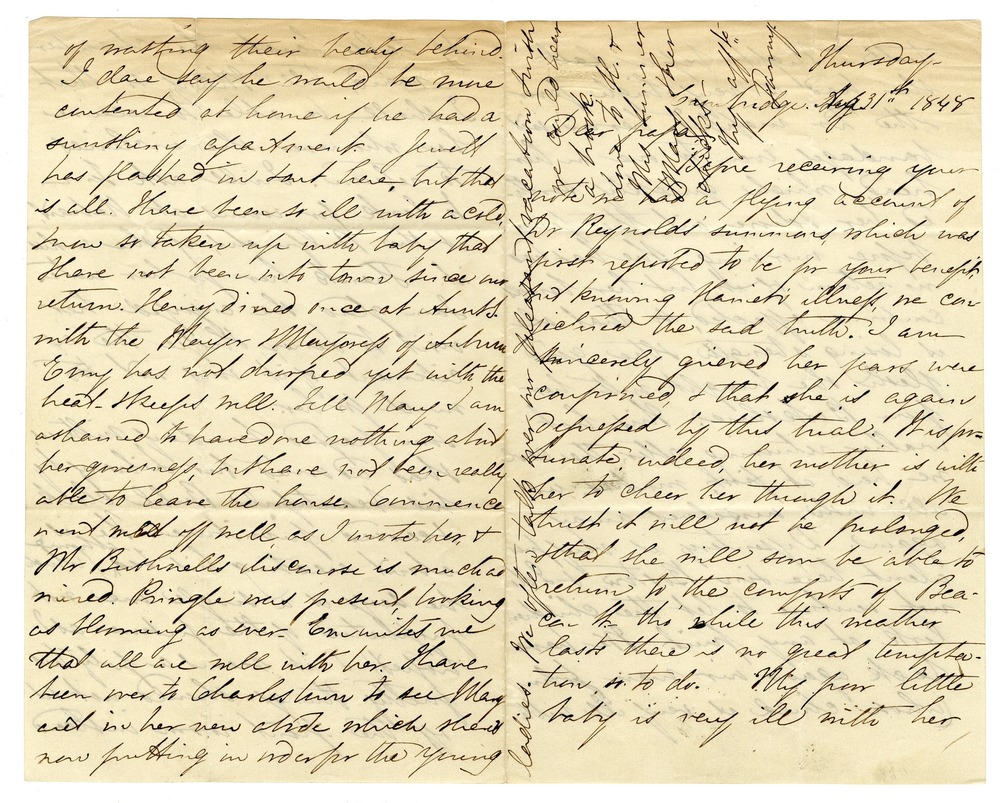 of washing their heads behind.
I dare say he would be more
contented at home if he had a
sunshiny apartment. Jewett
has flashed in & out here, but that
is all. I have been so ill with a cold,
& now so taken up with baby that
I have not been into town since our
return. Henry dined once at Aunt S.
with the Mayor & Mayoress of Auburn
Erny has not drooped yet with the
heat & keeps well. Tell Mary I am
ashamed to have done nothing about
her governess, but have not been really
able to leave the house. Commence
ment went off well, as I wrote her, &
Mr Bushnells discourse is much ad
mired. Pringle was present, looking
as blooming as ever. Em writes me
that all are well with her. I have
been over to Charlestown to see Mary
and in her new abode which she is
now putting in order for the young
Thursday
Cambridge. Aug 31st 1848
Dear papa,
Before receiving your
note we had a flying account of
Dr Reynolds' summons which was
first reported to be for your benefit,
but knowing Hariet's illness, we con
jectured the sad truth. I am
sincerely grieved her fears were
confirmed, & that she is again
depressed by this trial. It is for-
tunate, indeed, her mother is with
her to cheer her through it. We
trust it will not be prolonged,
& that she will soon be able to
return to the comforts of Bea-
con St. tho' while this weather
lasts there is no great tempta-
tion so to do. My poor little
baby is very ill with her
ladies. We often talk over our pleasant vacation & wish
we could hear
a brook.
Love to H. &
Mrs Sumner
& Mary & her
chicks.
Yr affte
Fanny